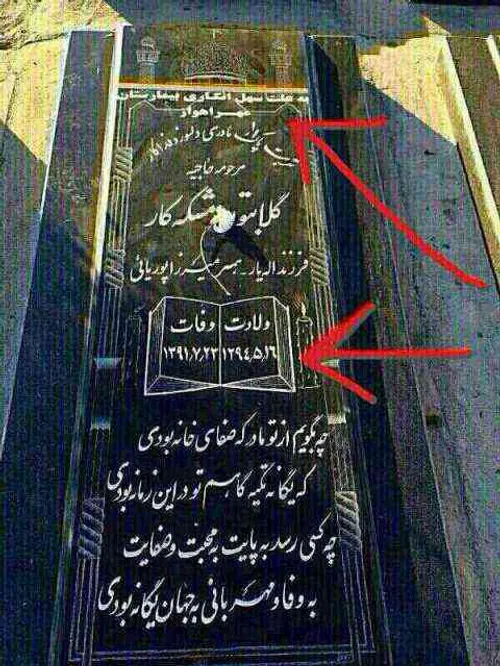 به علت سهل انگاری بیمارستان
مهر اهواز
مادری دلسوز و فداکار
مرحومه حاجیه
گلابتون مشکه کار
فرزند اله یار - همسر میرزا پوریائی
ولادت وفات
۱۲۹۴،۵،۱۶ ۱۳۹۱،۷،۲۳
چه بگویم از تو مادر که صفای خانه بودی
که یگانه تکیه گاهم تو در این زمانه بودی
چه کسی رسد به پایت به محبت و صفایت
به وفا و مهربانی به جهان یگانه بودی